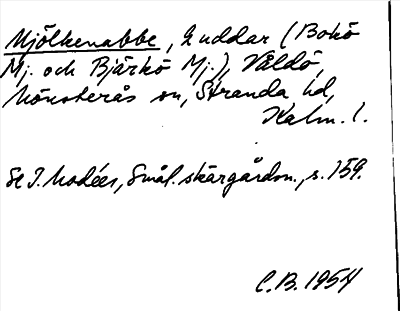 Mjölkenabbe, 2 uddar (Bokö
Mj. och Bjärkö Mj.), Våldö,
Mönsterås sn, Stranda hd,
Kalm. l.
Se I. Modéer, Smål. skärgårdsn., s. 159.
C.B. 1954